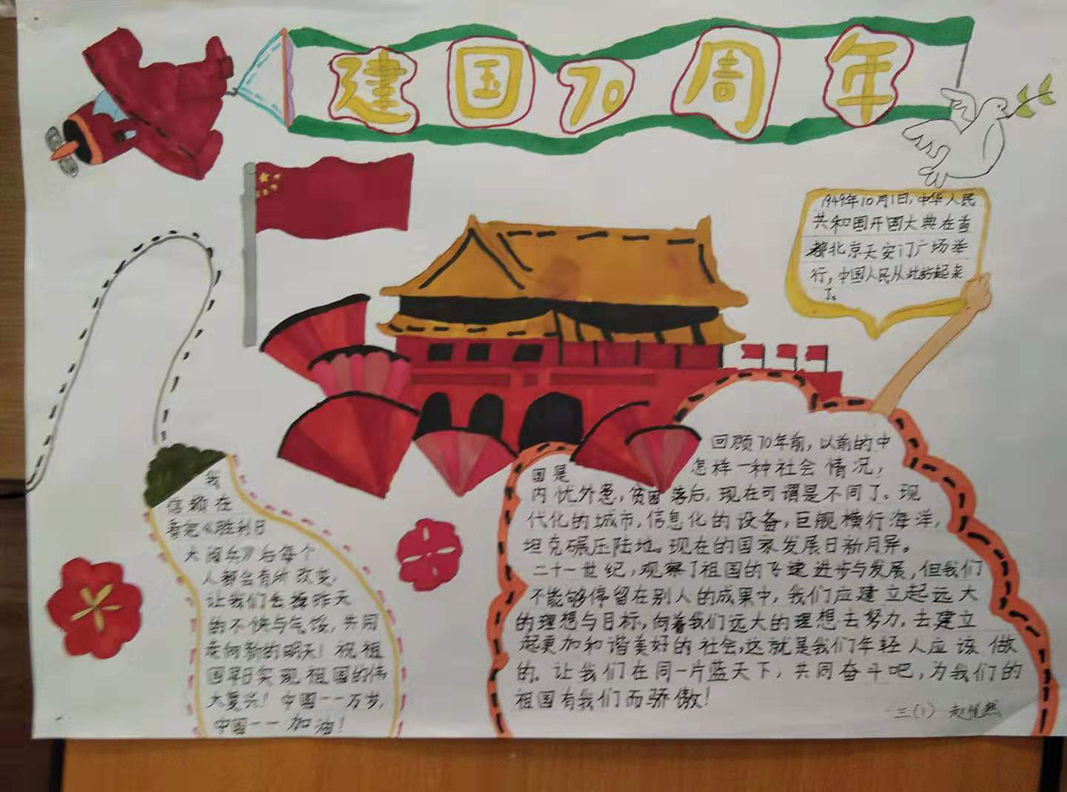 建国70周年
1949年10月1日,中华人民
共和国开国大典在首
都北京天安门广场举
行,中国人民从此站起来
了。
回顾70年前,以前的中
国是怎样一种社会情况,
内忧外患,贫困落后,现在可谓是不同了。现
代化的城市,信息化的设备,巨舰横行海洋,
坦克碾压陆地。现在的国家发展日新月异。
二十一世纪,观察了祖国的飞速进步与发展,但我们
不能够停留在别人的成果中,我们应建立起远大
的理想与目标,向着我们远大的理想去努力,去建立
起更加和谐美好的社会,这就是我们年轻人应该做
的。让我们在同一片蓝天下,共同奋斗吧,为我们的
祖国有我们而骄傲!
三(1)
我
信赖在
看完《胜利日
大阅兵》后每个
人都会有所改变,
让我们去掉昨天
的不快与气馁,共同
走向新的明天!祝祖
国早日实现祖国的伟
大复兴!中国一一万岁,
中国一一加油!